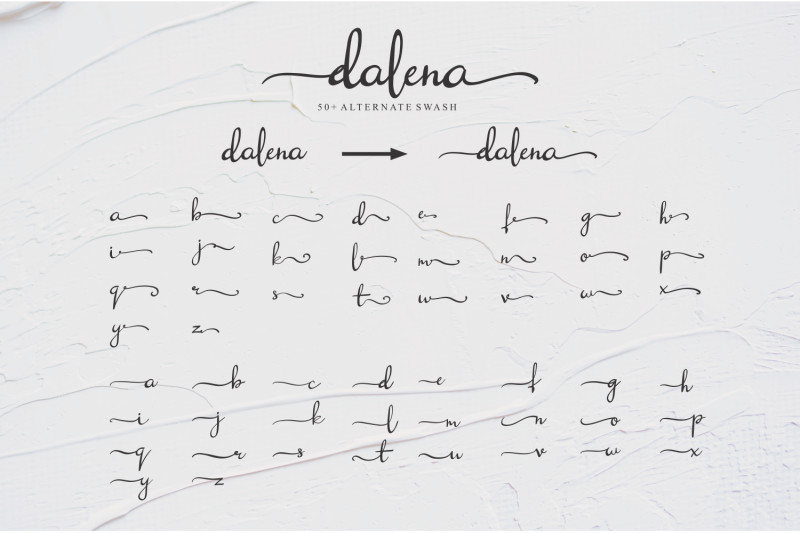 dalena
50+ ALTERNATE SWASH
dalena dalena
a b c d e f g h
i j k l m n o p
q r s t u v w x
y z
a b c d e f g h
i j k l m n o p
q r s t u v w x
y z